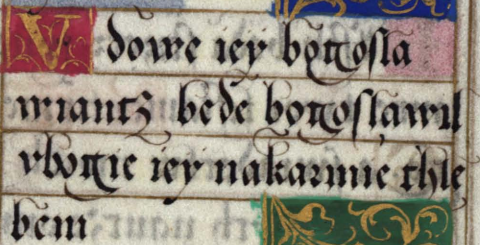 Vdowe iey bogosla
wiantz bede bogoslawil
vbogie iey nakarmie chle
bem